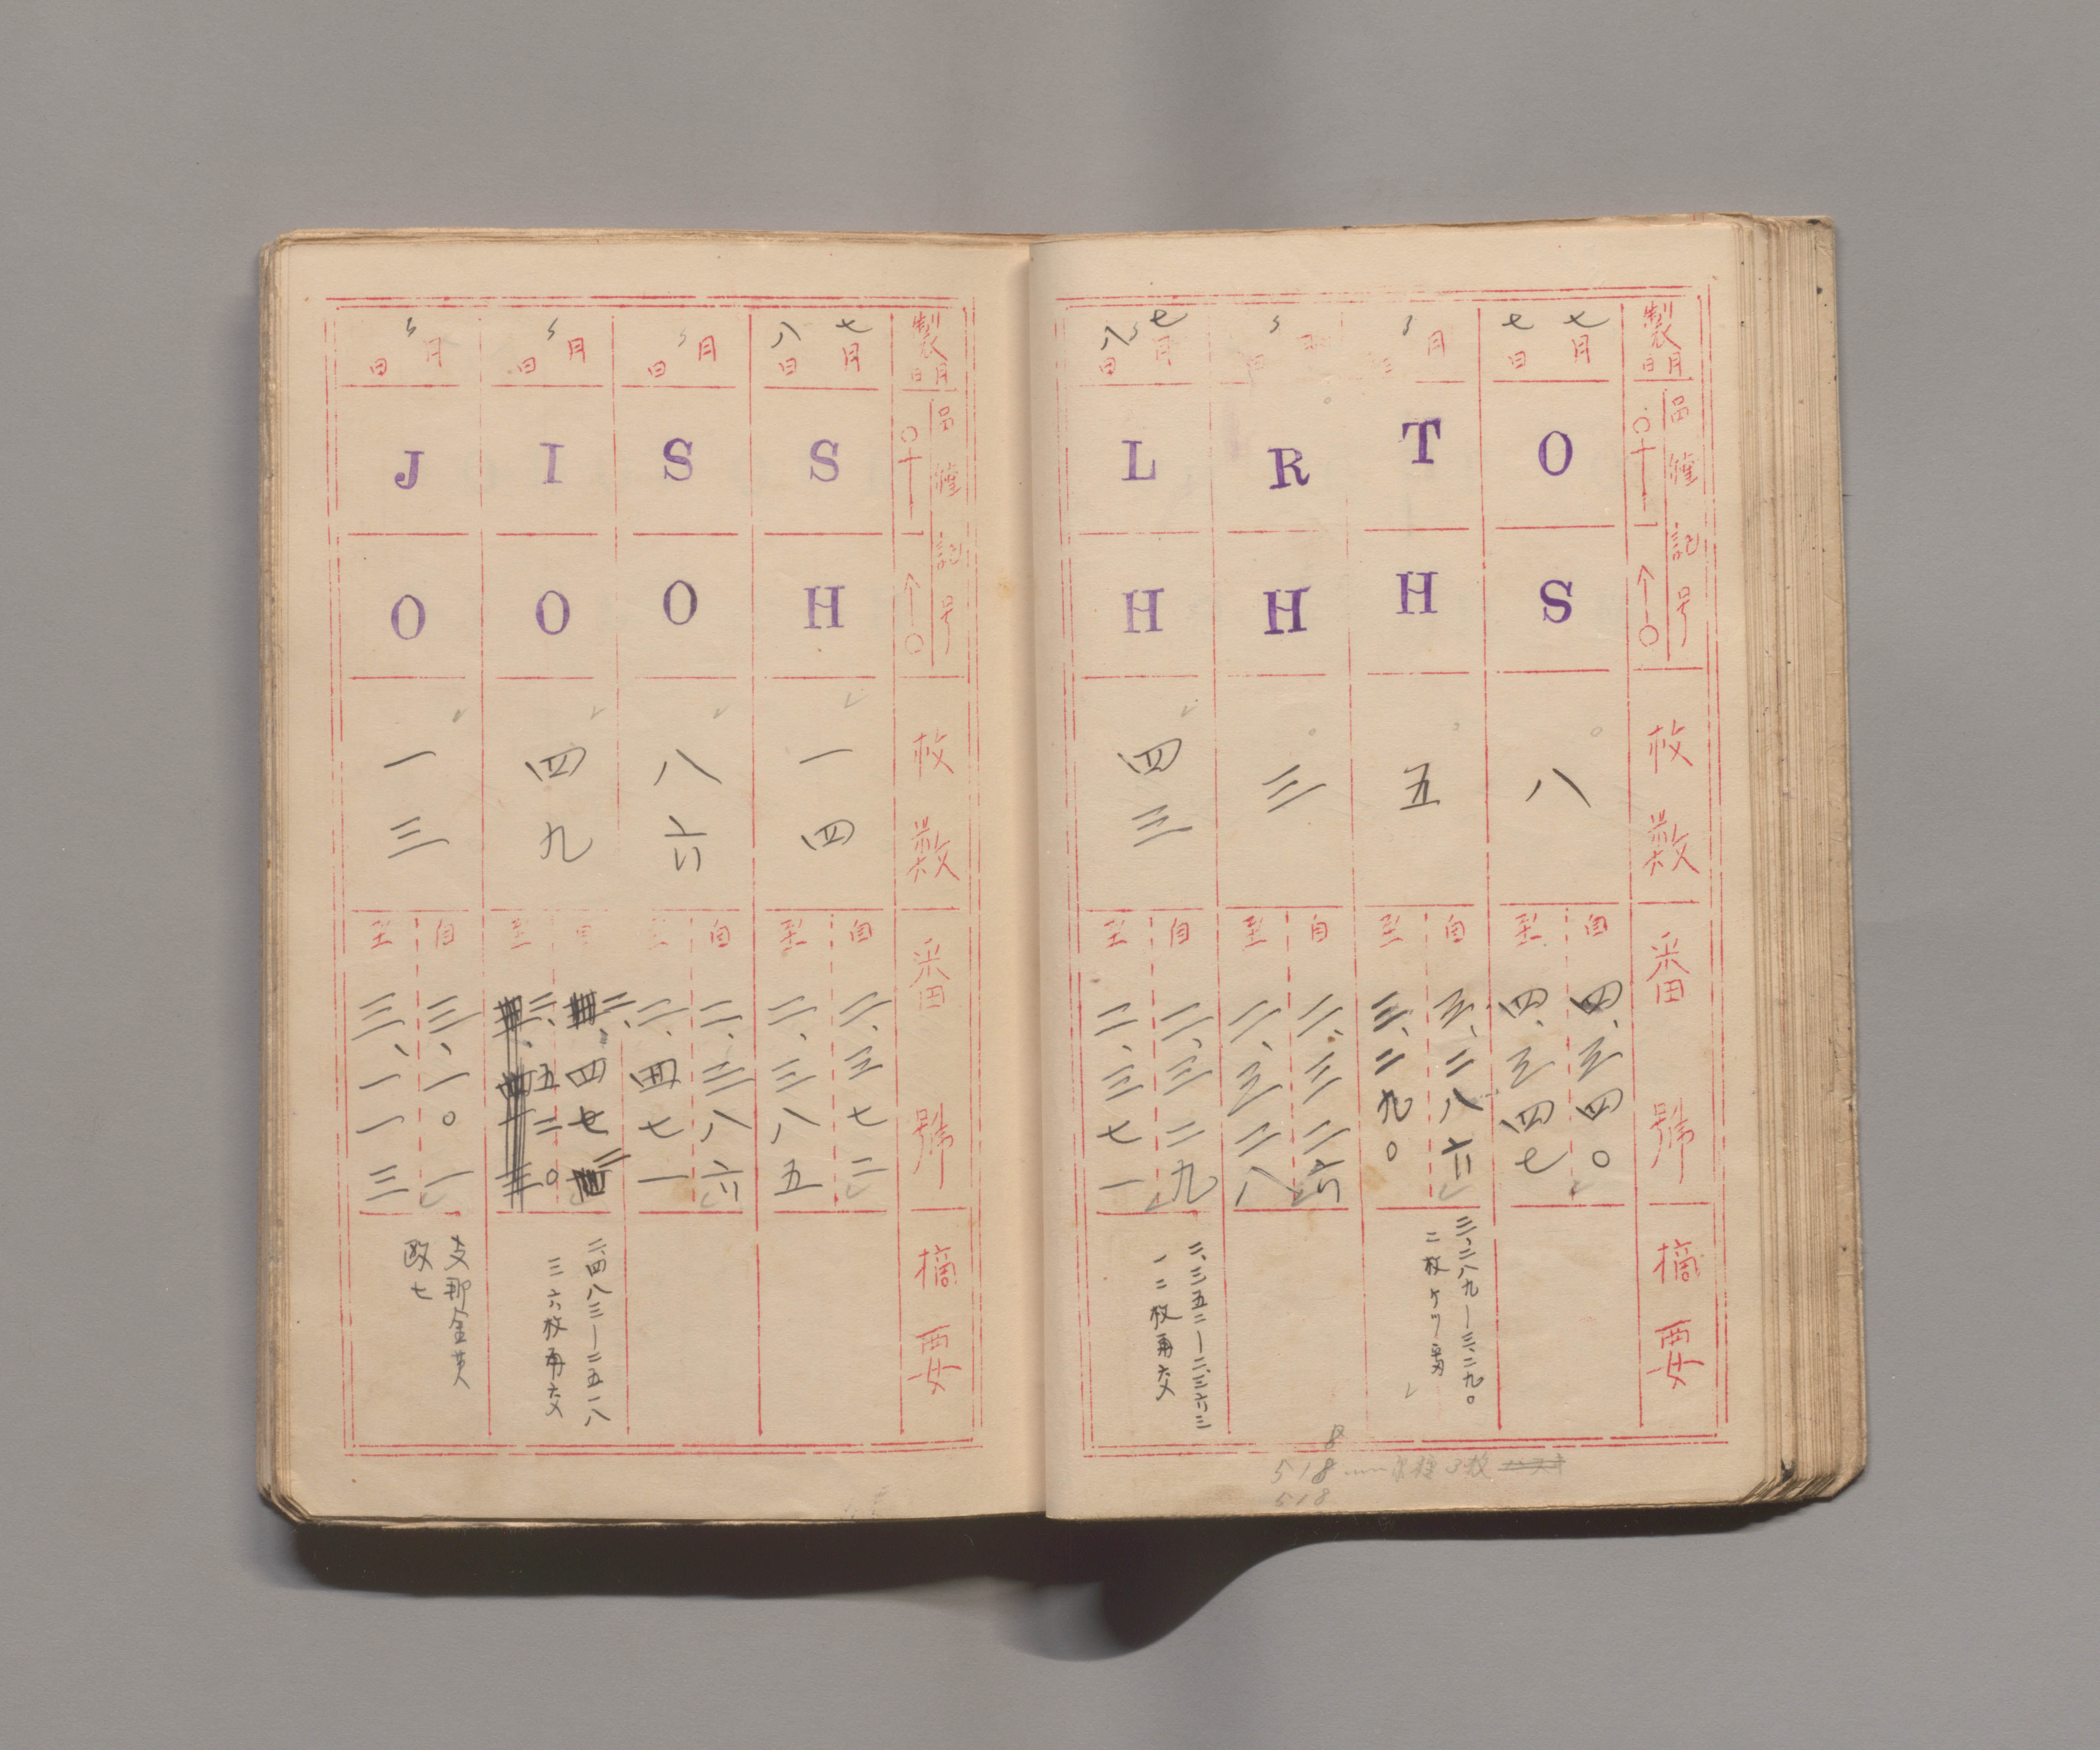 製月日
區種記号
枚数
番號
摘要
七月
七日
O
S
八
自 四、三四〇
至 四、三四七
〃月
日
T
H
五
自 三、二八六
至 三、二九〇
三、二八九ー三、二九〇
二枚ケツ番
〃
月
日
R
H
三
自 二、三二六
至 二、三二八
七月
八日
L
H
四三
自 二、三二九
至 二、三七一
二、三五二ー二、三六三
一二枚再交
8
518 3枚
518
製月日
區種記号
枚数
番號
摘要
七月
八日
S
H
一四
自 二、三七二
至 二、三八五
〃月
日
S
O
八六
自 二、三八六
至 二、四七一
〃月
日
I
O
四九
自 二、四七二
至 二、五二〇
二、四八三ー二五一八
三六枚再交
〃月
日
J
O
一三
自 三、一〇一
至 三、一一三
支那金